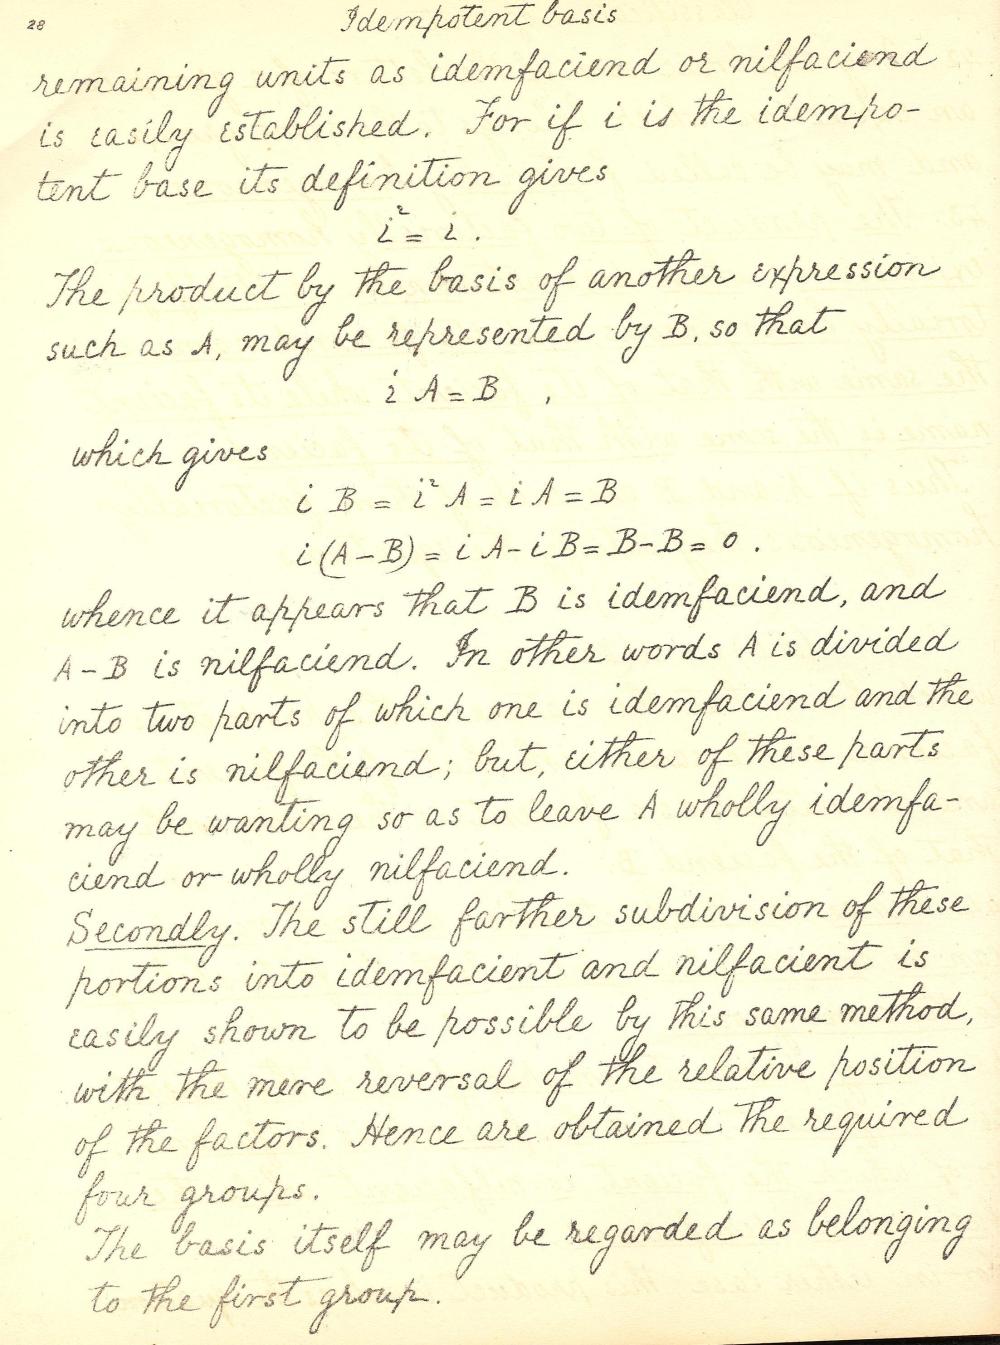 28
Idempotent basis
remaining units as idemfaciend or nilfaciend
is easily established. For if i is the idempo-
tent base its definition gives
i² = i.
The product by the basis of another expression
such as A, may be represented by B, so that
i A = B ,
which gives
i B = i² A = i A = B
i (A - B) = i A - i B = B - B = 0 .
whence it appears that B is idemfaciend, and
A - B is nilfaciend. In other words A is divided
into two parts of which one is idemfaciend and the
other is nilfaciend; but, either of these parts
may be wanting so as to leave A wholly idemfa-
ciend or wholly nilfaciend.
Secondly. The still farther subdivision of these
portions into idemfacient and nilfacient is
easily shown to be possible by this same method,
with the mere reversal of the relative position
of the factors. Hence are obtained the required
four groups.
The basis itself may be regarded as belonging
to the first group.